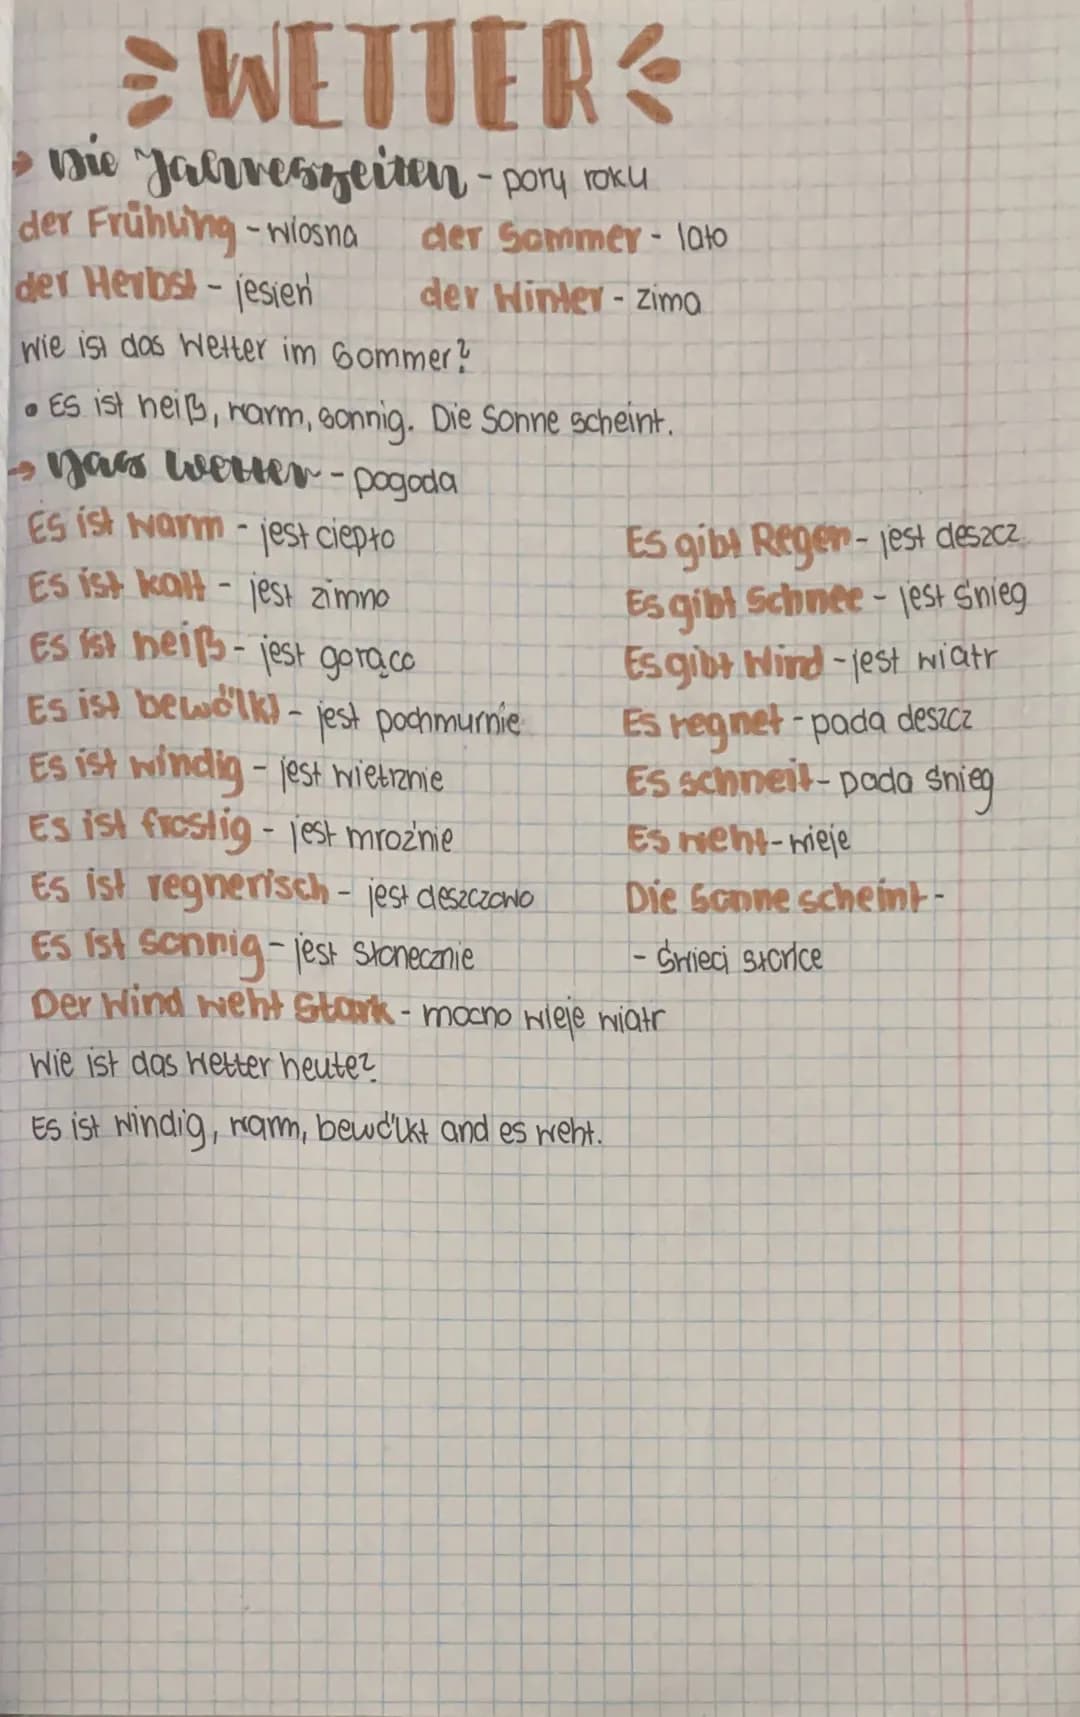 WETTER
→ Die Jahreszeiten - pory roku
der Frühling - wiosna der Sommer - lato
der Herbst - jesień der Winter - zima
Wie ist das Wetter im Sommer?
• Es ist heiß, warm, sonnig. Die Sonne scheint.
→ Das Wetter - pogoda
Es ist warm - jest ciepło
Es ist kalt - jest zimno
Es ist heiß - jest gorąco
Es ist bewölkt - jest pochmurnie
Es ist windig - jest wietrznie
Es ist frostig - jest mroźnie
Es ist regnerisch - jest deszczowo
Es ist sonnig - jest słonecznie
Es gibt Regen - jest deszcz
Es gibt Schnee - jest śnieg
Es gibt Wind - jest wiatr
Es regnet - pada deszcz
Es schneit - pada śnieg
Es weht - wieje
Die Sonne scheint -
- świeci słońce
Der Wind weht stark - mocno wieje wiatr
Wie ist das Wetter heute?
Es ist windig, warm, bewölkt and es weht.